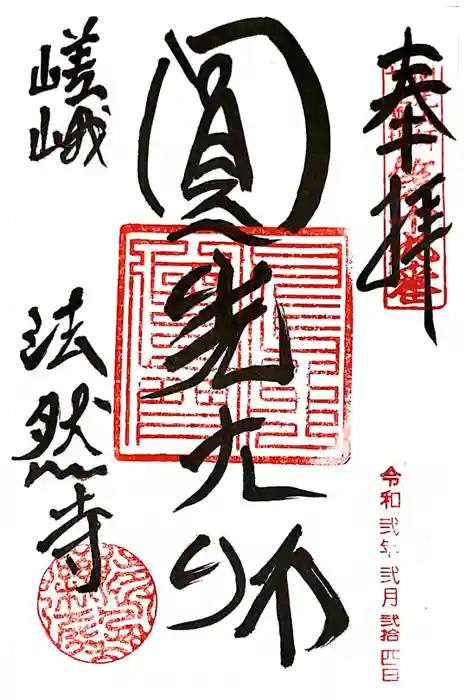 奉拝
令和弐年弐月弐拾四日
圓光大師
嵯峨
法然寺